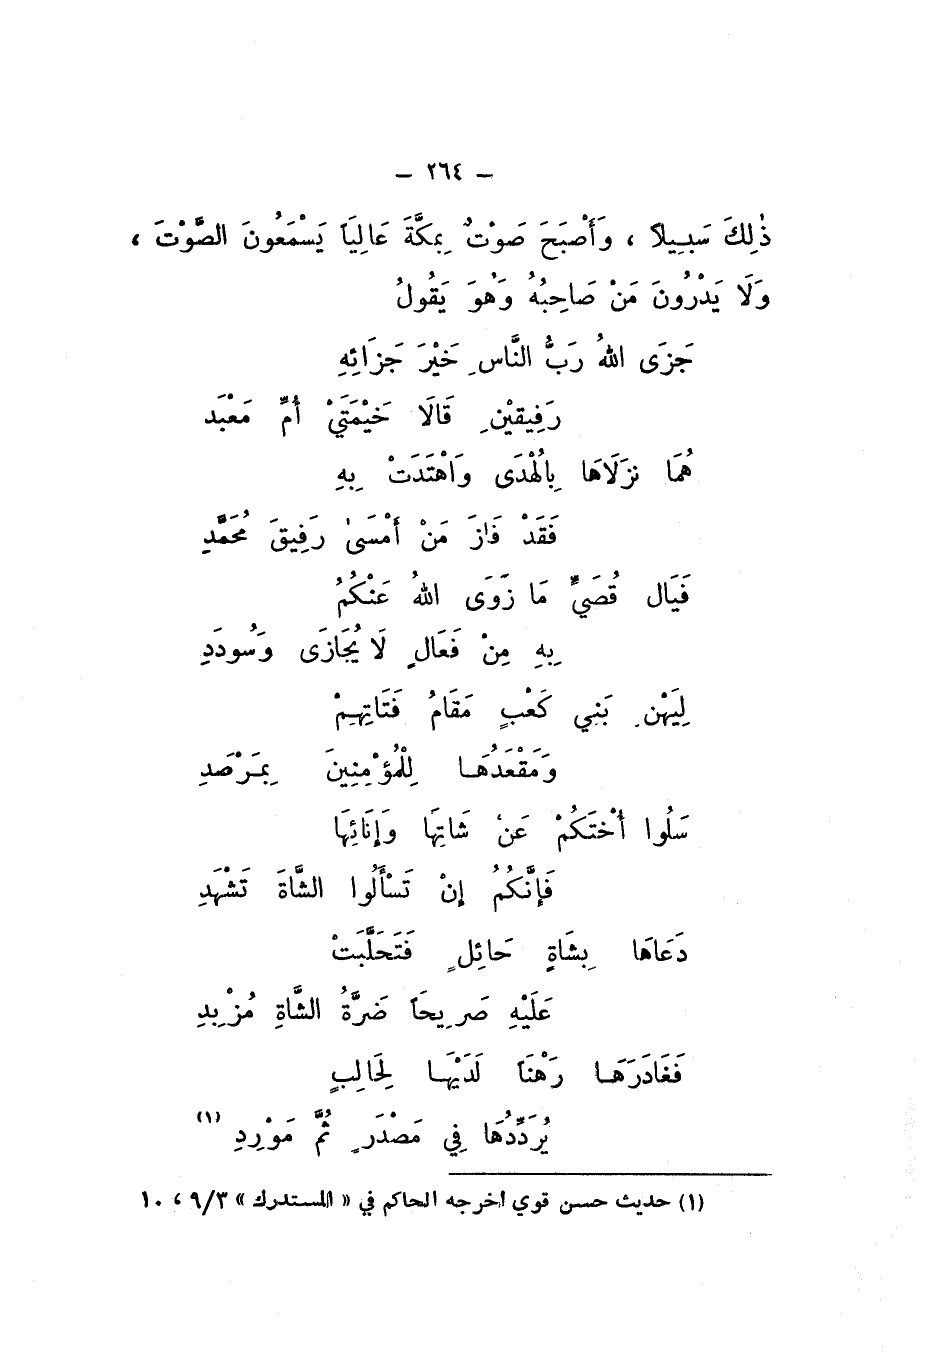 – ٢٦٤ –
ذٰلِكَ سَبِيلاً ، وَأَصْبَحَ صَوْتٌ بِمَكَّةَ عَالِيَاً يَسْمَعُونَ الصَّوْتَ ،
وَلَا يَدْرُونَ مَنْ صَاحِبُهُ وَهُوَ يَقُولُ
جَزَى اللهُ رَبُّ النَّاسِ خَيْرَ جَزَائِهِ
رَفِيقَيْنِ قَالَا خَيْمَتَيْ أُمِّ مَعْبَدِ
هُمَا نَزَلَاهَا بِالْهُدَى وَاهْتَدَتْ بِهِ
فَقَدْ فَازَ مَنْ أَمْسَىٰ رَفِيقَ مُحَمَّدِ
فَيَالَ قُصَيٍّ مَا زَوَى اللهُ عَنْكُمُ
بِهِ مِنْ فَعَالٍ لَا يُجَازَى وَسُودَدِ
لِيَهْنِ بَنِي كَعْبٍ مَقَامُ فَتَاتِهِمْ
وَمَقْعَدُهَا لِلْمُؤْمِنِينَ بِمَرْصَدِ
سَلُوا أُخْتَكُمْ عَنْ شَاتِهَا وَإِنَائِهَا
فَإِنَّكُمُ إِنْ تَسْأَلُوا الشَّاةَ تَشْهَدِ
دَعَاهَا بِشَاةٍ حَائِلٍ فَتَحَلَّبَتْ
عَلَيْهِ صَرِيحَاً ضَرَّةُ الشَّاةِ مُزْبِدِ
فَغَادَرَهَا رَهْنَاً لَدَيْهَا لِحَالِبٍ
يُرَدِّدُهَا فِي مَصْدَرٍ ثُمَّ مَوْرِدِ (١)
(١) حديث حسن قوي أخرجه الحاكم في « المستدرك » ٩/٣ ، ١٠